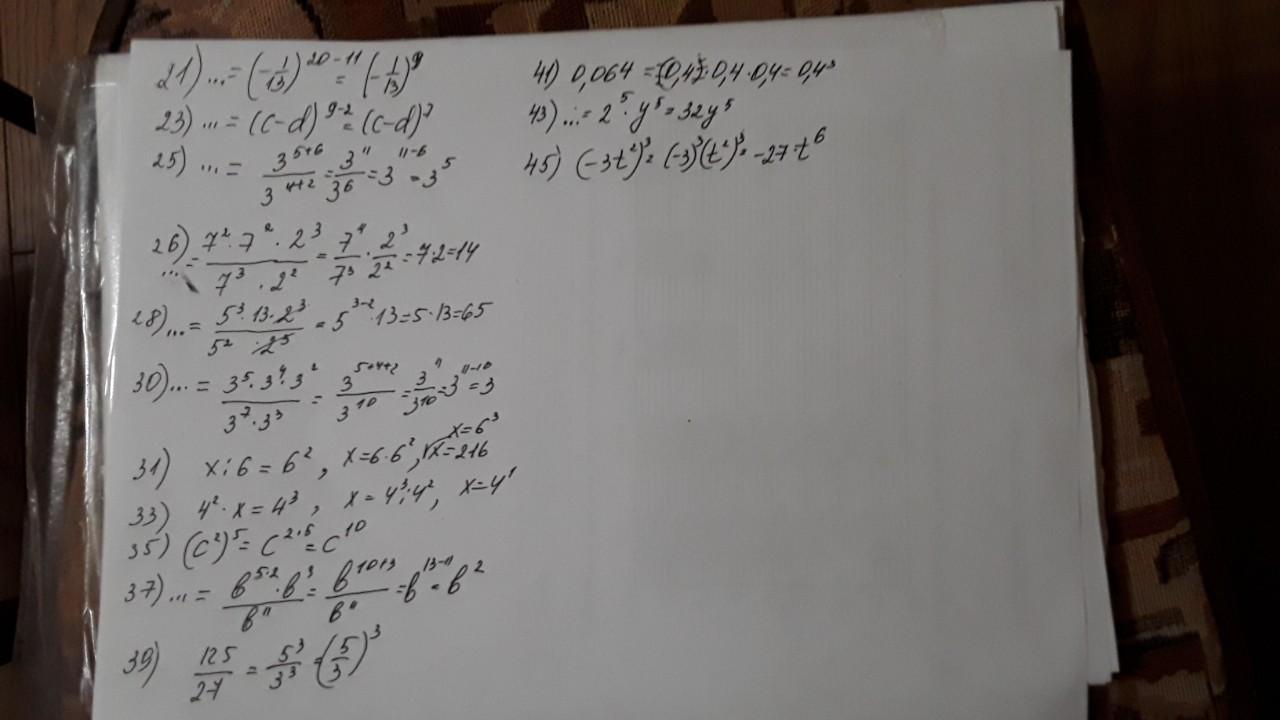 21) ... = (-1/13)^20-11 = (-1/13)^9
23) ... = (c-d)^9-2 = (c-d)^7
25) ... = 3^5+6 / 3^4+2 = 3^11 / 3^6 = 3^11-6 = 3^5
26) ... = 7^2 · 7^2 · 2^3 / 7^3 · 2^2 = 7^4 / 7^3 · 2^3 / 2^2 = 7·2=14
28) ... = 5^3 · 13 · 2^3 / 5^2 · 2^3 = 5^3-2 · 13 = 5·13=65
30) ... = 3^5 · 3^4 · 3^2 / 3^7 · 3^3 = 3^5+4+2 / 3^10 = 3^11 / 3^10 = 3^11-10 = 3
x=6^3
31) x:6 = 6^2, x=6·6^2, x=216
33) 4^2 · x = 4^3, x = 4^3:4^2, x=4^1
35) (c^2)^5 = c^2·5 = c^10
37) ... = b^5·2 · b^3 / b^11 = b^10+3 / b^11 = b^13-11 = b^2
39) 125/27 = 5^3 / 3^3 = (5/3)^3
41) 0,064 = 0,4·0,4·0,4 = 0,4^3
43) ... = 2^5 · y^5 = 32y^5
45) (-3t^2)^3 = (-3)^3(t^2)^3 = -27·t^6